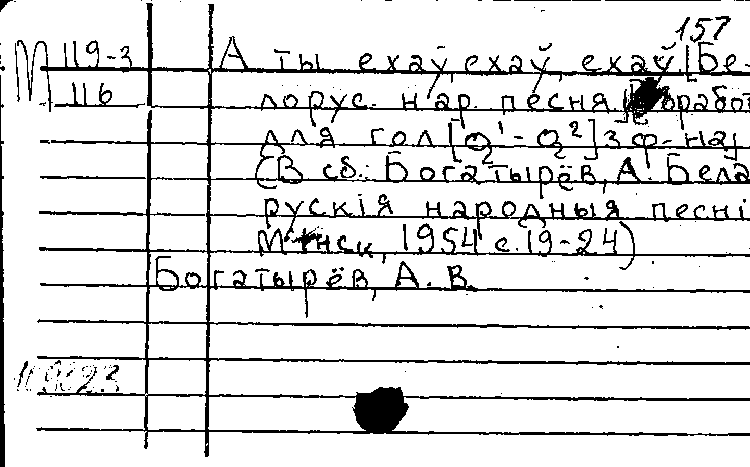 157
М 119-3 А ты ехаў, ехаў, ехаў. [Бе-
116 лорус. нар. песня.] Обработ
для гол [a¹-a²] з ф-на
(В сб.: Богатырёв, А. Бела
рускія народныя песні
Мінск, 1954 с. 19-24)
Богатырёв, А. В.